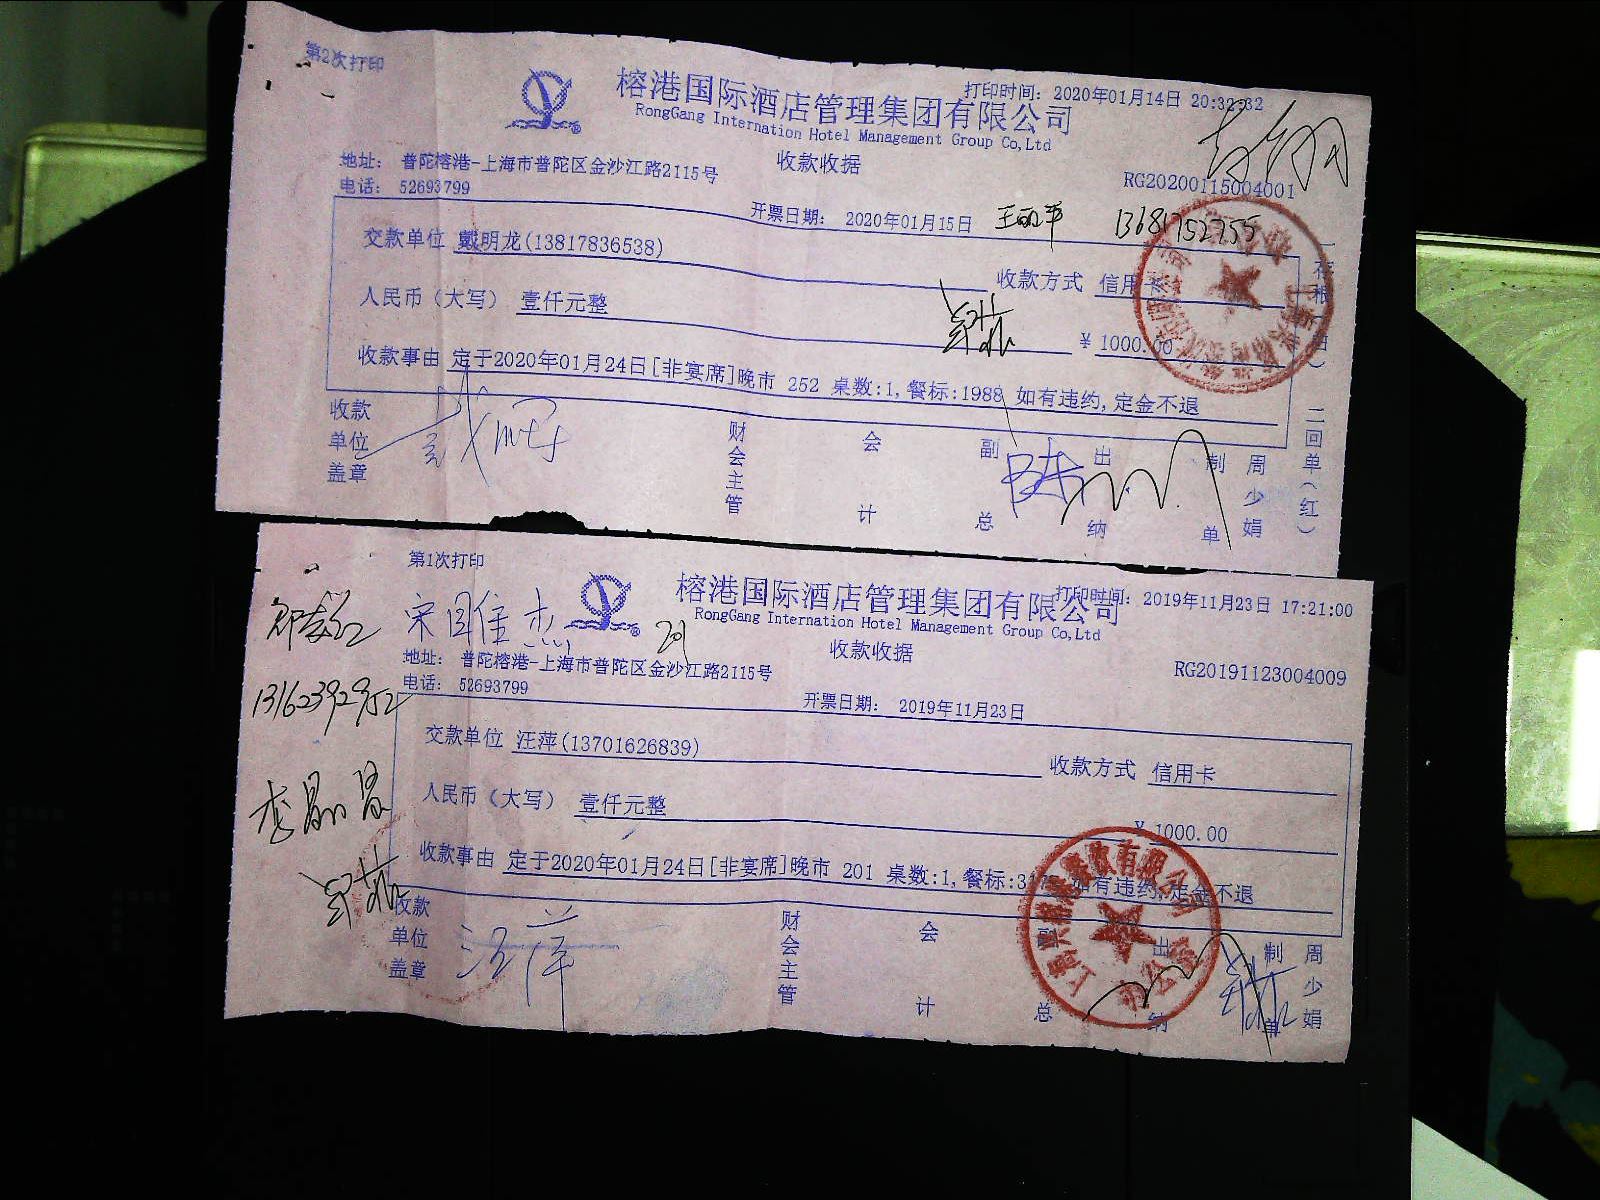 第2次打印
打印时间: 2020年01月14日 20:32:32
榕港国际酒店管理集团有限公司
RongGang Internation Hotel Management Group Co,Ltd
收款收据
地址: 普陀榕港-上海市普陀区金沙江路2115号
RG20200115004001
电话: 52693799
开票日期: 2020年01月15日
13681752755
交款单位 戴明龙(13817836538)
收款方式 信用卡
人民币(大写) 壹仟元整
¥ 1000.00
收款事由 定于2020年01月24日[非宴席]晚市 252 桌数:1,餐标:1988 如有违约,定金不退
收款单位盖章
财会主管
会计
副总
出纳
制单
周少娟
二回单(红)
第1次打印
打印时间: 2019年11月23日 17:21:00
榕港国际酒店管理集团有限公司
RongGang Internation Hotel Management Group Co,Ltd
收款收据
地址: 普陀榕港-上海市普陀区金沙江路2115号
RG20191123004009
电话: 52693799
开票日期: 2019年11月23日
交款单位 汪萍(13701626839)
收款方式 信用卡
人民币(大写) 壹仟元整
¥ 1000.00
收款事由 定于2020年01月24日[非宴席]晚市 201 桌数:1,餐标:31 如有违约,定金不退
收款单位盖章
汪萍
财会主管
会计
副总
出纳
制单
周少娟